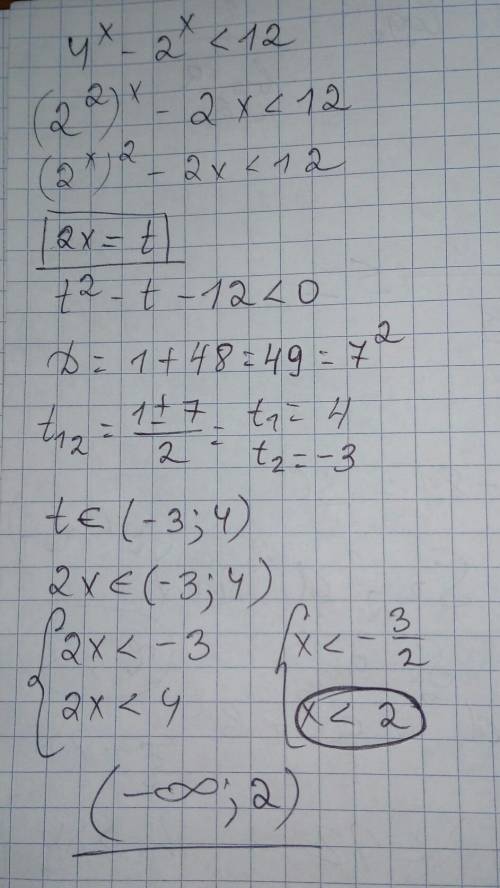 4^x - 2^x < 12
(2^2)^x - 2x < 12
(2^x)^2 - 2x < 12
2x = t
t^2 - t - 12 < 0
D = 1 + 48 = 49 = 7^2
t_12 = (1 ± 7)/2 = t_1 = 4
t_2 = -3
t ∈ (-3; 4)
2x ∈ (-3; 4)
{ 2x < -3 { x < -3/2
2x < 4 x < 2
(-∞; 2)